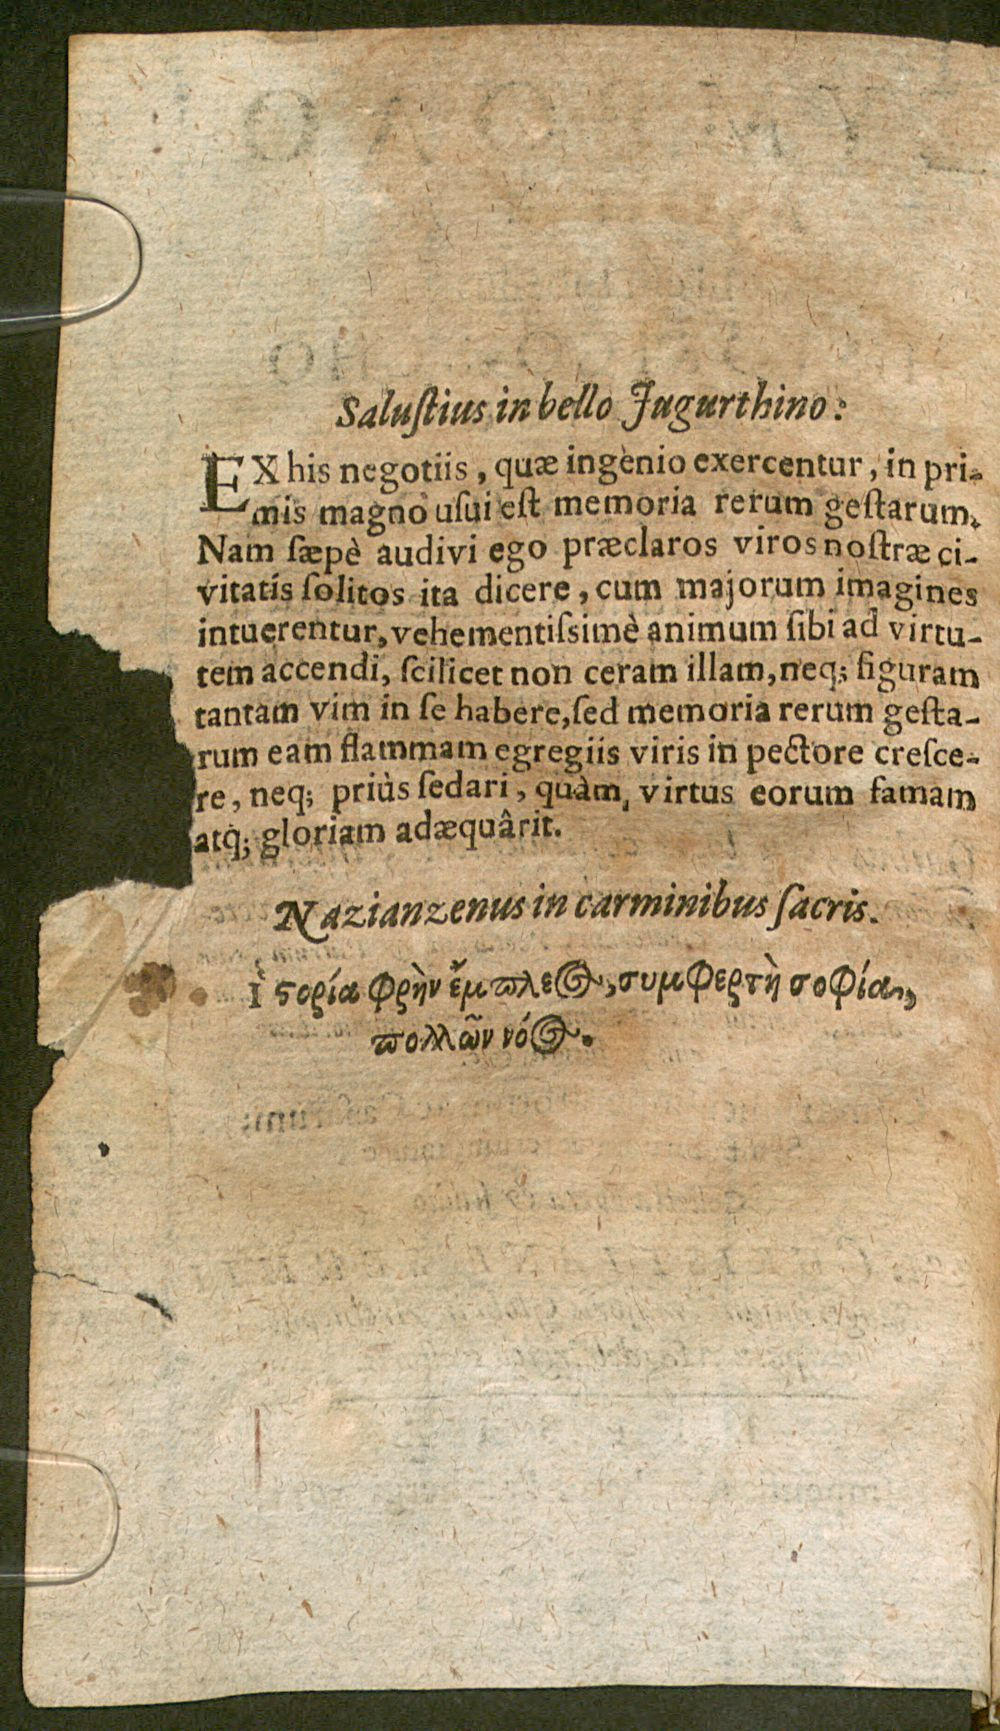 Saluſtius in bello Jugurthino:
EX his negotiis, quæ ingenio exercentur, in pri-
mis magno uſui eſt memoria rerum geſtarum.
Nam ſæpè audivi ego præclaros viros noſtræ ci-
vitatis ſolitos ita dicere, cum majorum imagines
intuerentur, vehementiſsimè animum ſibi ad virtu-
tem accendi, ſcilicet non ceram illam, neq; figuram
tantam vim in ſe habere, ſed memoria rerum geſta-
rum eam flammam egregiis viris in pectore creſce-
re, neq; priùs ſedari, quàm, virtus eorum famam
atq; gloriam adæquârit.
Nazianzenus in carminibus ſacris.
Ἱϛορία φρὴν ἔμπλεος, συμφερτὴ σοφία,
πολλῶν νόος.